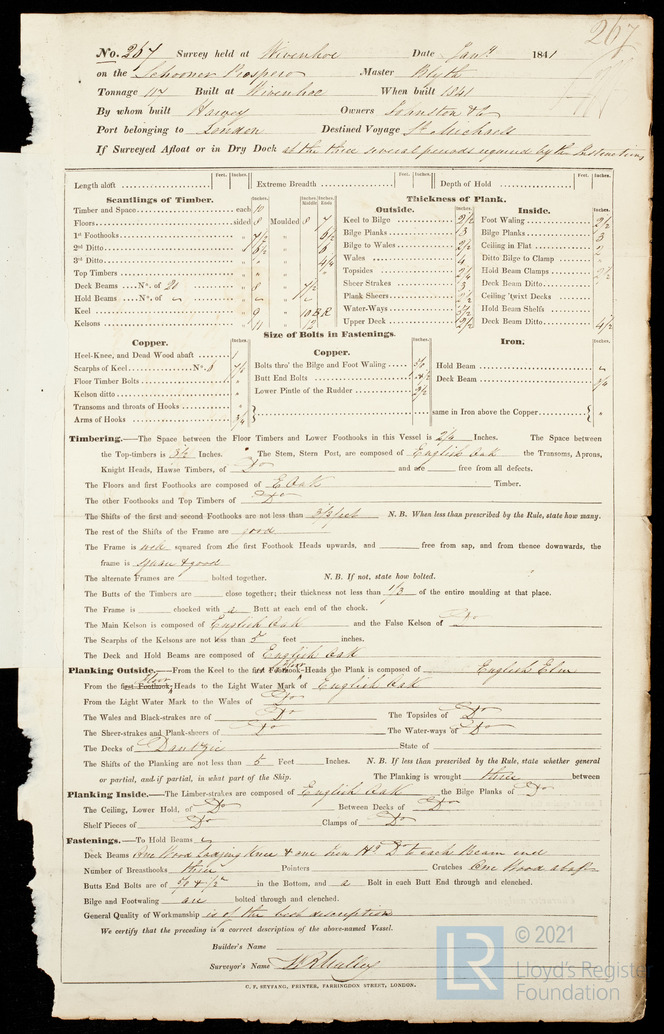 267
No. 267 Survey held at Wivenhoe Date Jany. 1841
on the Schooner Prospero Master Blyth
Tonnage 112 Built at Wivenhoe When built 1841
By whom built Harvey Owners Johnston & Co
Port belonging to London Destined Voyage St. Michaels
If Surveyed Afloat or in Dry Dock at the three several periods required by the Instructions
Length aloft Feet. Inches. Extreme Breadth Feet. Inches. Depth of Hold Feet. Inches.
Scantlings of Timber. Thickness of Plank.
Inches. Inches. Middle Inches. Ends Outside. Inches. Inside. Inches.
Timber and Space each 10 Keel to Bilge 2½ Foot Waling 2½
Floors sided 8 Moulded 8 7 Bilge Planks 3 Bilge Planks 3
1st Foothooks 7½ " 6½ Bilge to Wales 2½ Ceiling in Flat 2
2nd Ditto 6½ " 6 Wales 4 Ditto Bilge to Clamp "
3rd Ditto " " 4¼ Topsides 2¼ Hold Beam Clamps 2½
Top Timbers " " " Sheer Strakes 3 Deck Beam Ditto
Deck Beams No. of 21 8 " 7½ Plank Sheers 2½ Ceiling 'twixt Decks
Hold Beams No. of " Water-Ways 3½ Hold Beam Shelfs
Keel 9 " 10 Upper Deck 2½ Deck Beam Ditto 4½
Kelsons 11 " 12
Size of Bolts in Fastenings.
Copper. Inches. Copper. Inches. Iron. Inches.
Heel-Knee, and Dead Wood abaft 1
Scarphs of Keel No. 6 Bolts thro' the Bilge and Foot Waling 5/8 Hold Beam
Floor Timber Bolts Butt End Bolts Deck Beam ¾
Kelson ditto Lower Pintle of the Rudder 2½
Transoms and throats of Hooks
Arms of Hooks ¾ same in Iron above the Copper "
Timbering.—The Space between the Floor Timbers and Lower Foothooks in this Vessel is 2¼ Inches. The Space between
the Top-timbers is 3½ Inches. The Stem, Stern Post, are composed of English Oak the Transoms, Aprons,
Knight Heads, Hawse Timbers, of Do and are free from all defects.
The Floors and first Foothooks are composed of E. Oak Timber.
The other Foothooks and Top Timbers of Do
The Shifts of the first and second Foothooks are not less than feet N. B. When less than prescribed by the Rule, state how many.
The rest of the Shifts of the Frame are good
The Frame is well squared from the first Foothook Heads upwards, and free from sap, and from thence downwards, the
frame is square & good
The alternate Frames are bolted together. N. B. If not, state how bolted.
The Butts of the Timbers are close together; their thickness not less than 1/3 of the entire moulding at that place.
The Frame is chocked with a Butt at each end of the chock.
The Main Kelson is composed of English Oak and the False Kelson of Do
The Scarphs of the Kelsons are not less than 5 feet inches.
The Deck and Hold Beams are composed of English Oak
Planking Outside.—From the Keel to the first Foothook-Heads the Plank is composed of English Elm
From the first Foothook floor Heads to the Light Water Mark of English Oak
From the Light Water Mark to the Wales of Do
The Wales and Black-strakes are of Do The Topsides of Do
The Sheer-strakes and Plank-sheers of Do The Water-ways of Do
The Decks of Dantzic State of
The Shifts of the Planking are not less than 5 Feet Inches. N. B. If less than prescribed by the Rule, state whether general
or partial, and if partial, in what part of the Ship. The Planking is wrought three between
Planking Inside.—The Limber-strakes are composed of English Oak the Bilge Planks of Do
The Ceiling, Lower Hold, of Do Between Decks of Do
Shelf Pieces of Do Clamps of Do
Fastenings.—To Hold Beams
Deck Beams One Wood Lodging Knee & one Iron Hg Do to each Beam end
Number of Breasthooks three Pointers Crutches One Wood abaft
Butts End Bolts are of 5/8 & 1/2 in the Bottom, and a Bolt in each Butt End through and clenched.
Bilge and Footwaling are bolted through and clenched.
General Quality of Workmanship is of the best description
We certify that the preceding is a correct description of the above-named Vessel.
Builder's Name
Surveyor's Name
C. F. SEYFANG, PRINTER, FARRINGDON STREET, LONDON.
LR © 2021
Lloyd's Register
Foundation